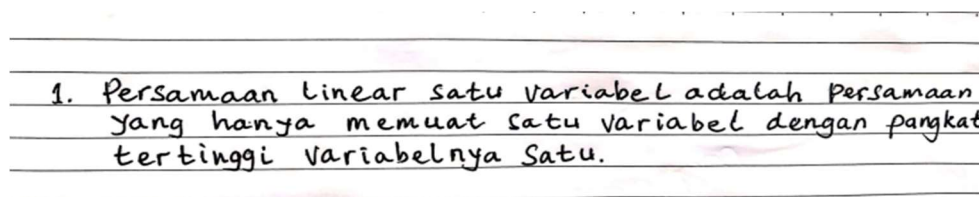 1. Persamaan linear satu variabel adalah persamaan
yang hanya memuat satu variabel dengan pangkat
tertinggi variabelnya satu.